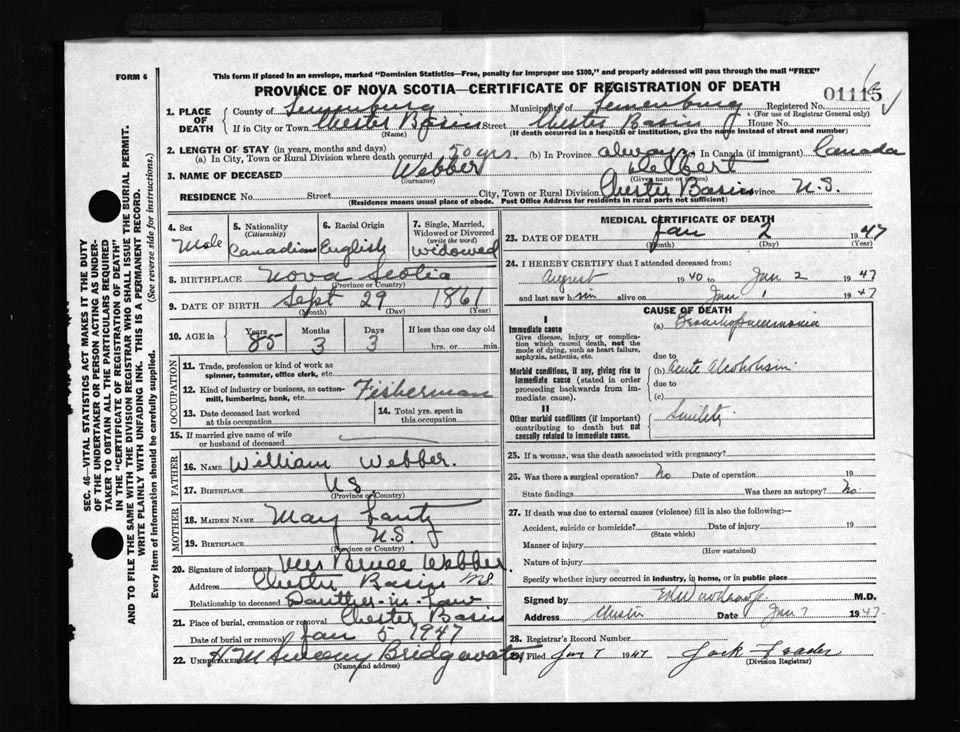 FORM 6
This form if placed in an envelope, marked "Dominion Statistics—Free, penalty for improper use $300," and properly addressed will pass through the mail "FREE"
PROVINCE OF NOVA SCOTIA—CERTIFICATE OF REGISTRATION OF DEATH
01115
SEC. 46—VITAL STATISTICS ACT MAKES IT THE DUTY
OF THE UNDERTAKER OR PERSON ACTING AS UNDER-
TAKER TO OBTAIN ALL THE PARTICULARS REQUIRED
IN THE "CERTIFICATE OF REGISTRATION OF DEATH"
AND TO FILE THE SAME WITH THE DIVISION REGISTRAR WHO SHALL ISSUE THE BURIAL PERMIT.
WRITE PLAINLY WITH UNFADING INK. THIS IS A PERMANENT RECORD.
Every item of information should be carefully supplied. (See reverse side for instructions.)
1. PLACE OF DEATH
County of Lunenburg Municipality of Lunenburg Registered No.
(For use of Registrar General only)
If in City or Town Chester Basin Street Chester Basin House No.
(Name) (If death occurred in a hospital or institution, give the name instead of street and number)
2. LENGTH OF STAY (in years, months and days)
(a) In City, Town or Rural Division where death occurred 50 yrs. (b) In Province always In Canada (if immigrant) Canada
3. NAME OF DECEASED Webber Delbert
(Surname) (Given name or names)
RESIDENCE No. Street City, Town or Rural Division Chester Basin Province N.S.
(Residence means usual place of abode. Post Office Address for residents in rural parts not sufficient)
4. Sex
Male
5. Nationality
(Citizenship)
Canadian
6. Racial Origin
English
7. Single, Married,
Widowed or Divorced
(write the word)
Widowed
8. BIRTHPLACE Nova Scotia
(Province or Country)
9. DATE OF BIRTH Sept 29 1861
(Month) (Day) (Year)
10. AGE in Years Months Days If less than one day old
85 3 3 hrs. or min.
OCCUPATION
11. Trade, profession or kind of work as
spinner, teamster, office clerk, etc.
12. Kind of industry or business, as cotton-
mill, lumbering, bank, etc. Fisherman
13. Date deceased last worked
at this occupation
14. Total yrs. spent in
this occupation
15. If married give name of wife
or husband of deceased
FATHER
16. NAME William Webber.
17. BIRTHPLACE N.S.
(Province or Country)
MOTHER
18. MAIDEN NAME May Lantz
19. BIRTHPLACE N.S.
(Province or Country)
20. Signature of informant Mrs Bruce Webber.
Address Chester Basin N.S.
Relationship to deceased Daughter-in-Law
21. Place of burial, cremation or removal Chester Basin
Date of burial or removal Jan 5 1947
22. UNDERTAKER Bridgewater
(Name and address)
MEDICAL CERTIFICATE OF DEATH
23. DATE OF DEATH Jan 2 1947
(Month) (Day) (Year)
24. I HEREBY CERTIFY that I attended deceased from:
August 1940 to Jan 2 1947
and last saw him alive on Jan 1 1947
CAUSE OF DEATH
I
Immediate cause
Give disease, injury or complica-
tion which caused death, not the
mode of dying, such as heart failure,
asphyxia, asthenia, etc.
(a) Bronchopneumonia
due to
Morbid conditions, if any, giving rise to
immediate cause (stated in order
proceeding backwards from im-
mediate cause)
(b) Acute Alcoholism
due to
(c)
II
Other morbid conditions (if important)
contributing to death but not
causally related to immediate cause.
Senility
25. If a woman, was the death associated with pregnancy?
26. Was there a surgical operation? No Date of operation 19
State findings Was there an autopsy? No
27. If death was due to external causes (violence) fill in also the following:—
Accident, suicide or homicide? Date of injury 19
(State which)
Manner of injury
(How sustained)
Nature of injury
Specify whether injury occurred in industry, in home, or in public place
Signed by M.D.
Address Chester Date Jan 7 1947.
28. Registrar's Record Number
29. Filed Jan 7 1947 Jack
(Division Registrar)